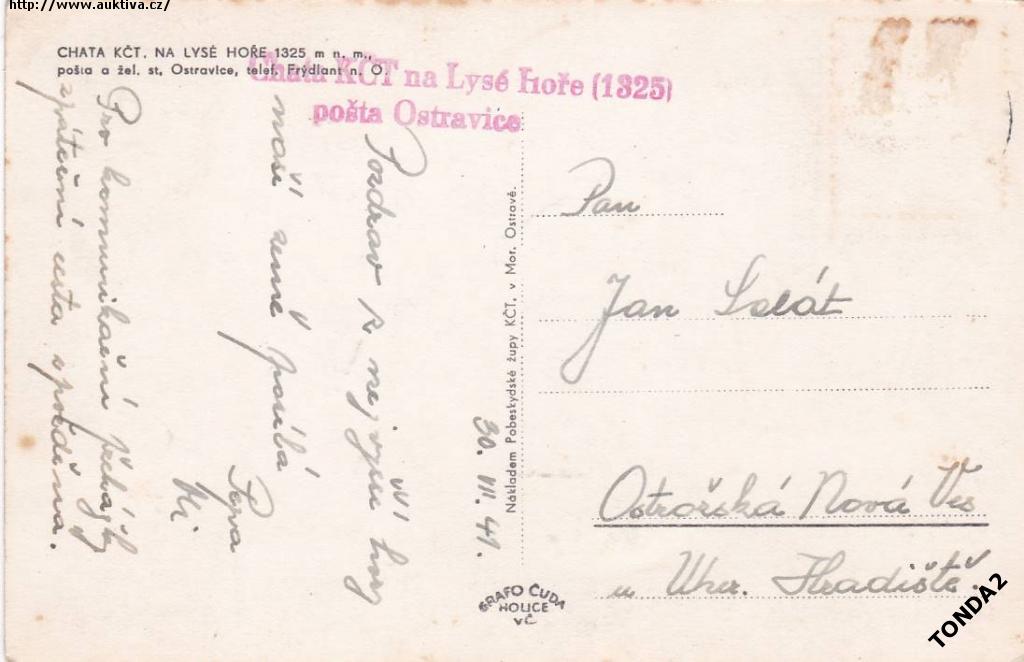 http://www.auktiva.cz/
CHATA KČT. NA LYSÉ HOŘE 1325 m n. m.,
pošta a žel. st. Ostravice, telef. Frýdlant n. O.
Chata KČT na Lysé Hoře (1325)
pošta Ostravice
Pozdrav z nejvyšší hory
naší země posílá
Pepa
Pro komunikační překážky
zpáteční cesta opožděna.
30. VII. 41.
Nákladem Pobeskydské župy KČT. v Mor. Ostravě.
GRAFO ČUDA
HOLICE
VČ
Pan
Jan
Ostrožská Nová Ves
u Uher. Hradiště.
TONDA2